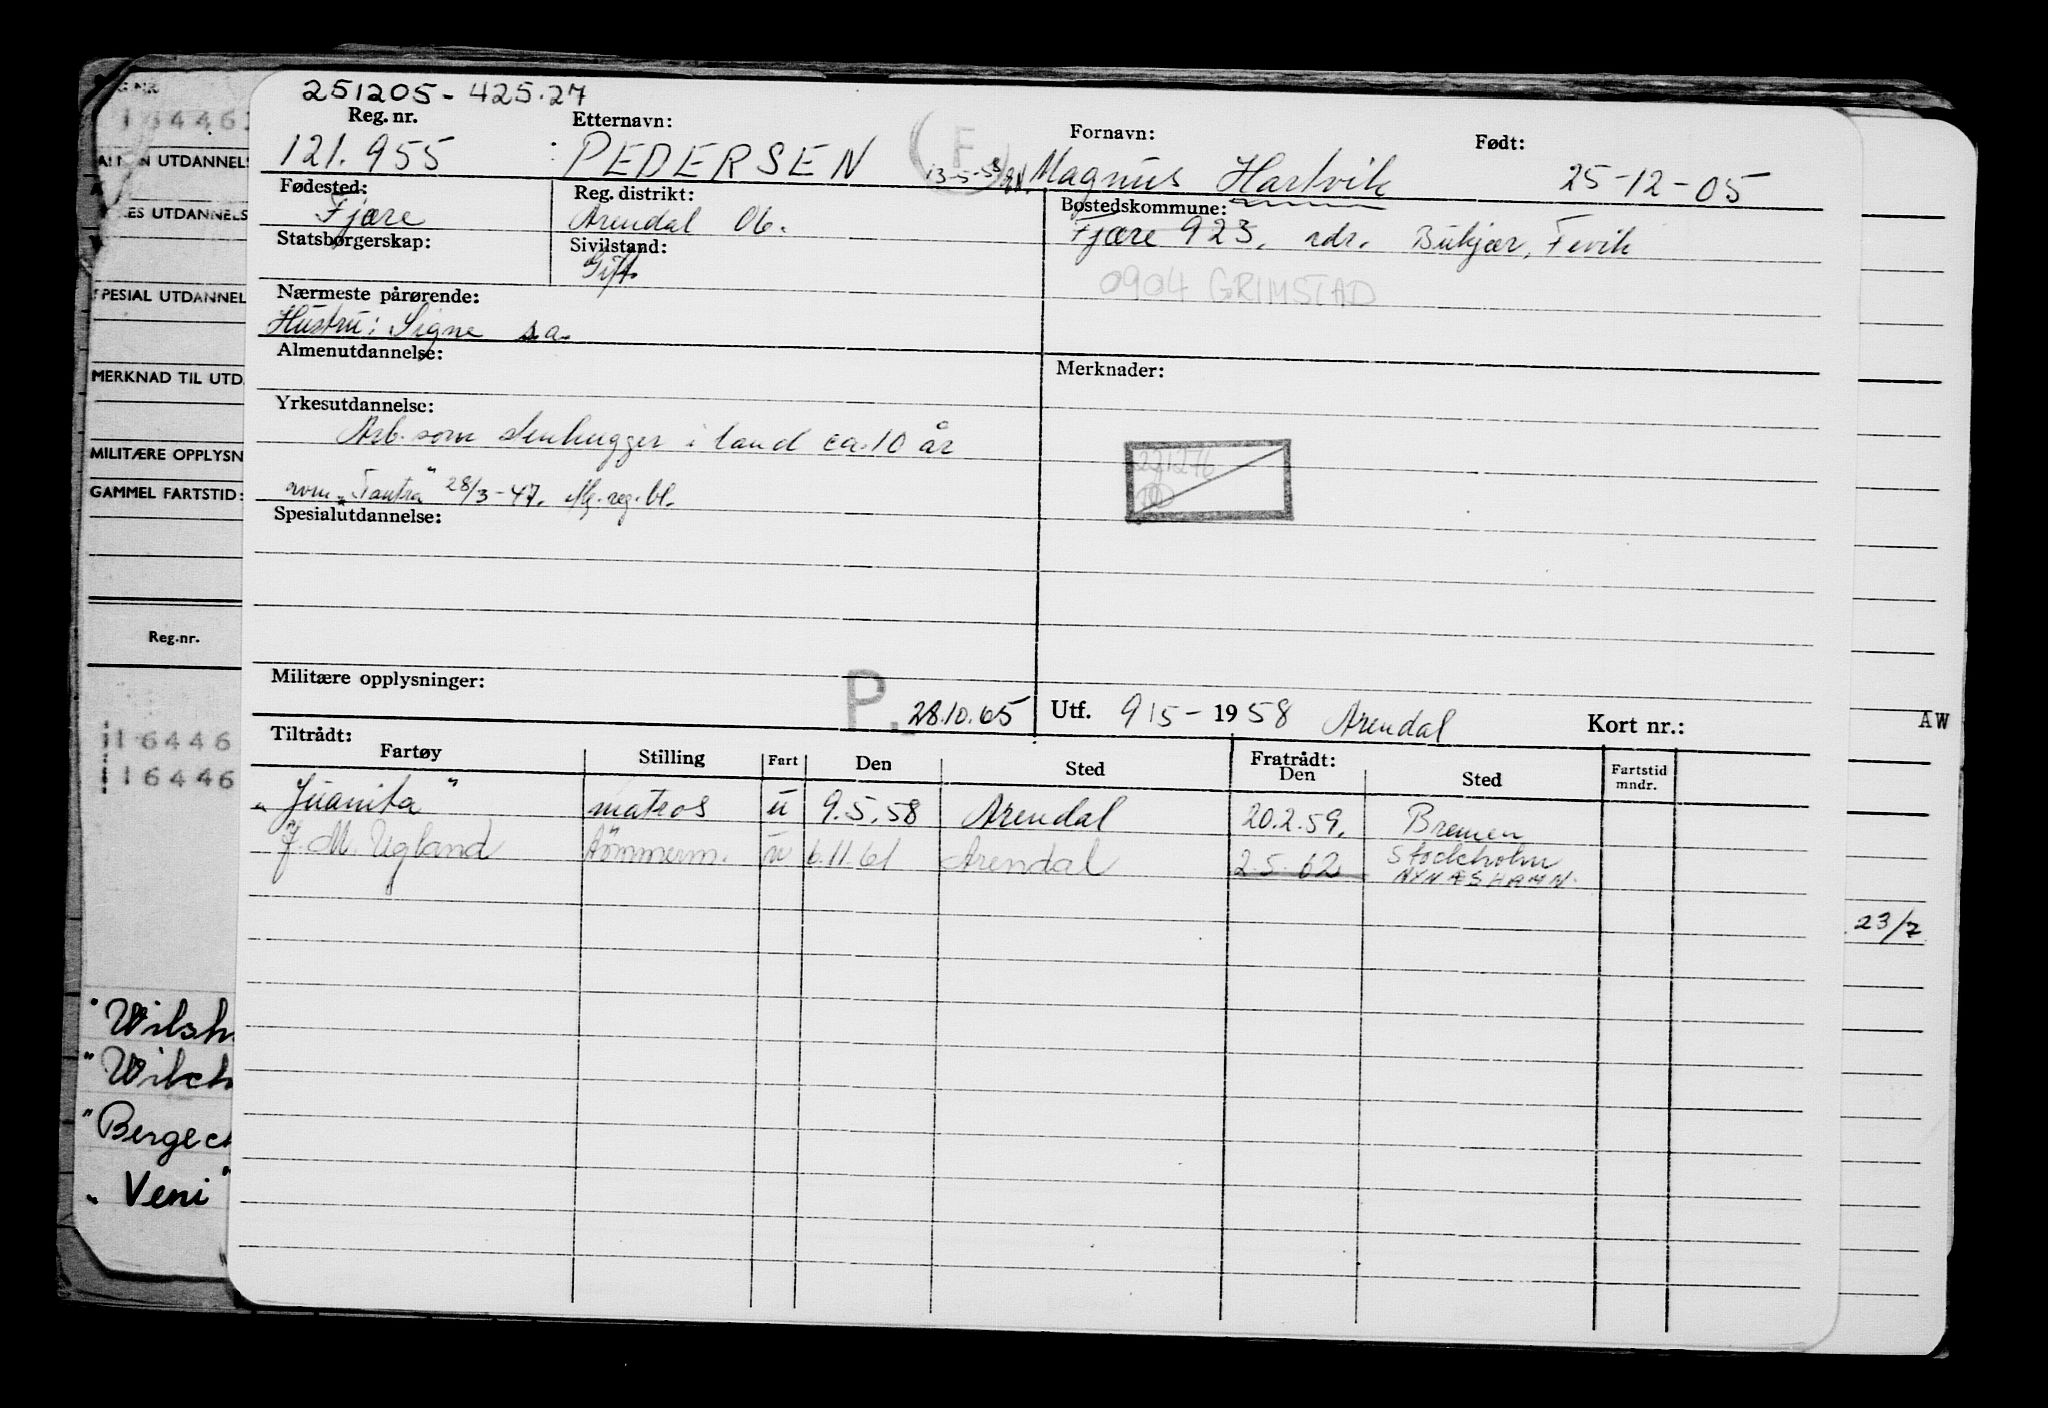 251205-425.27
Reg. nr. Etternavn: Fornavn: Født:
121.955 PEDERSEN (F) 13-5-58 Magnus Hartvik 25-12-05
Fødested: Reg. distrikt: Bostedskommune:
Fjære Arendal 06. Fjære 923. adr. Bukjær, Fevik
Statsborgerskap: Sivilstand:
Gift. 0904 GRIMSTAD
Nærmeste pårørende:
Hustru: Signe s.a.
Almenutdannelse: Merknader:
Yrkesutdannelse:
Arb. som stenhugger i land ca. 10 år
221276
"Fantra" 28/3-47. Mg. reg. bl.
Spesialutdannelse:
Militære opplysninger: P. 28.10.65 Utf. 9/5-1958 Arendal Kort nr.:
Tiltrådt: Fratrådt:
Fartøy Stilling Fart Den Sted Den Sted Fartstid mndr.
"Juanita" matros u 9.5.58 Arendal 20.2.59. Bremen
J. M. Ugland tömmerm. u 6.11.61 Arendal 2.5.62 Stockholm
NYNÆSHAMN.
G.NR
UTDANNELS
ES UTDANNELS
SPESIAL UTDANNEL
MERKNAD TIL UTD
MILITÆRE OPPLYSN
GAMMEL FARTSTID:
Reg.nr.
116446
116446
"Wilsh
"Wilch
"Berge
"Veni"
AW
23/7